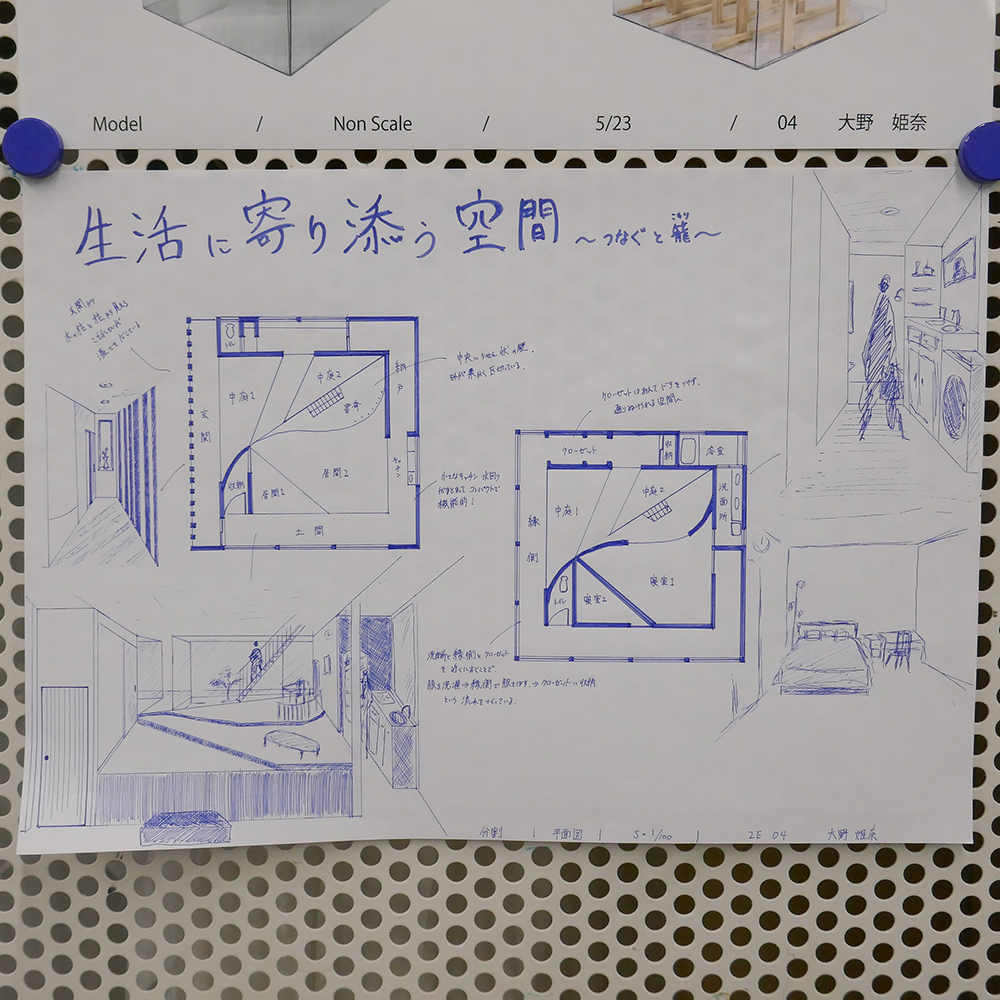 Model / Non Scale / 5/23 / 04 大野 姫奈
生活に寄り添う空間 〜つなぐと籠〜
玄関
中庭1
中庭2
書斎
納戸
キッチン
収納
居間1
居間2
土間
中央にらせん状の壁。
クローゼットはあえてドアをつけず、
通りぬけられる空間へ
小さなキッチン 水回り
がまとまってコンパクトで
機能的!
クローゼット
収納
浴室
洗面所
縁側
中庭1
中庭2
トイレ
寝室1
寝室2
洗面所と縁側とクローゼット
を近くにおくことで、
服を洗濯→縁側で服を干す。→クローゼットに収納
という流れをつくっている。
分割 | 平面図 | S=1/100 | 2E 04 大野 姫奈